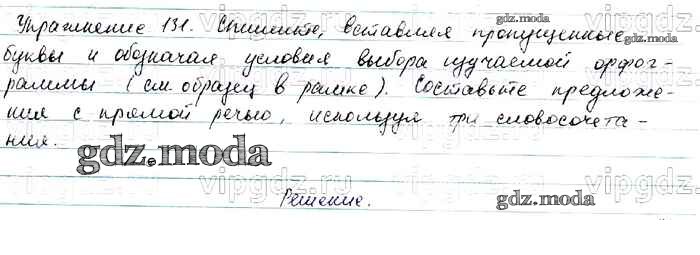 Упражнение 131. Спишите, вставляя пропущенные
gdz.moda
gdz.moda
буквы и обозначая условия выбора изучаемой орфог-
раммы (см. образец в рамке). Составьте предложе-
ния с прямой речью, используя три словосочета-
ния.
gdz.moda
gdz.moda
vipgdz.ru
vipgdz
Решение.
gdz.moda